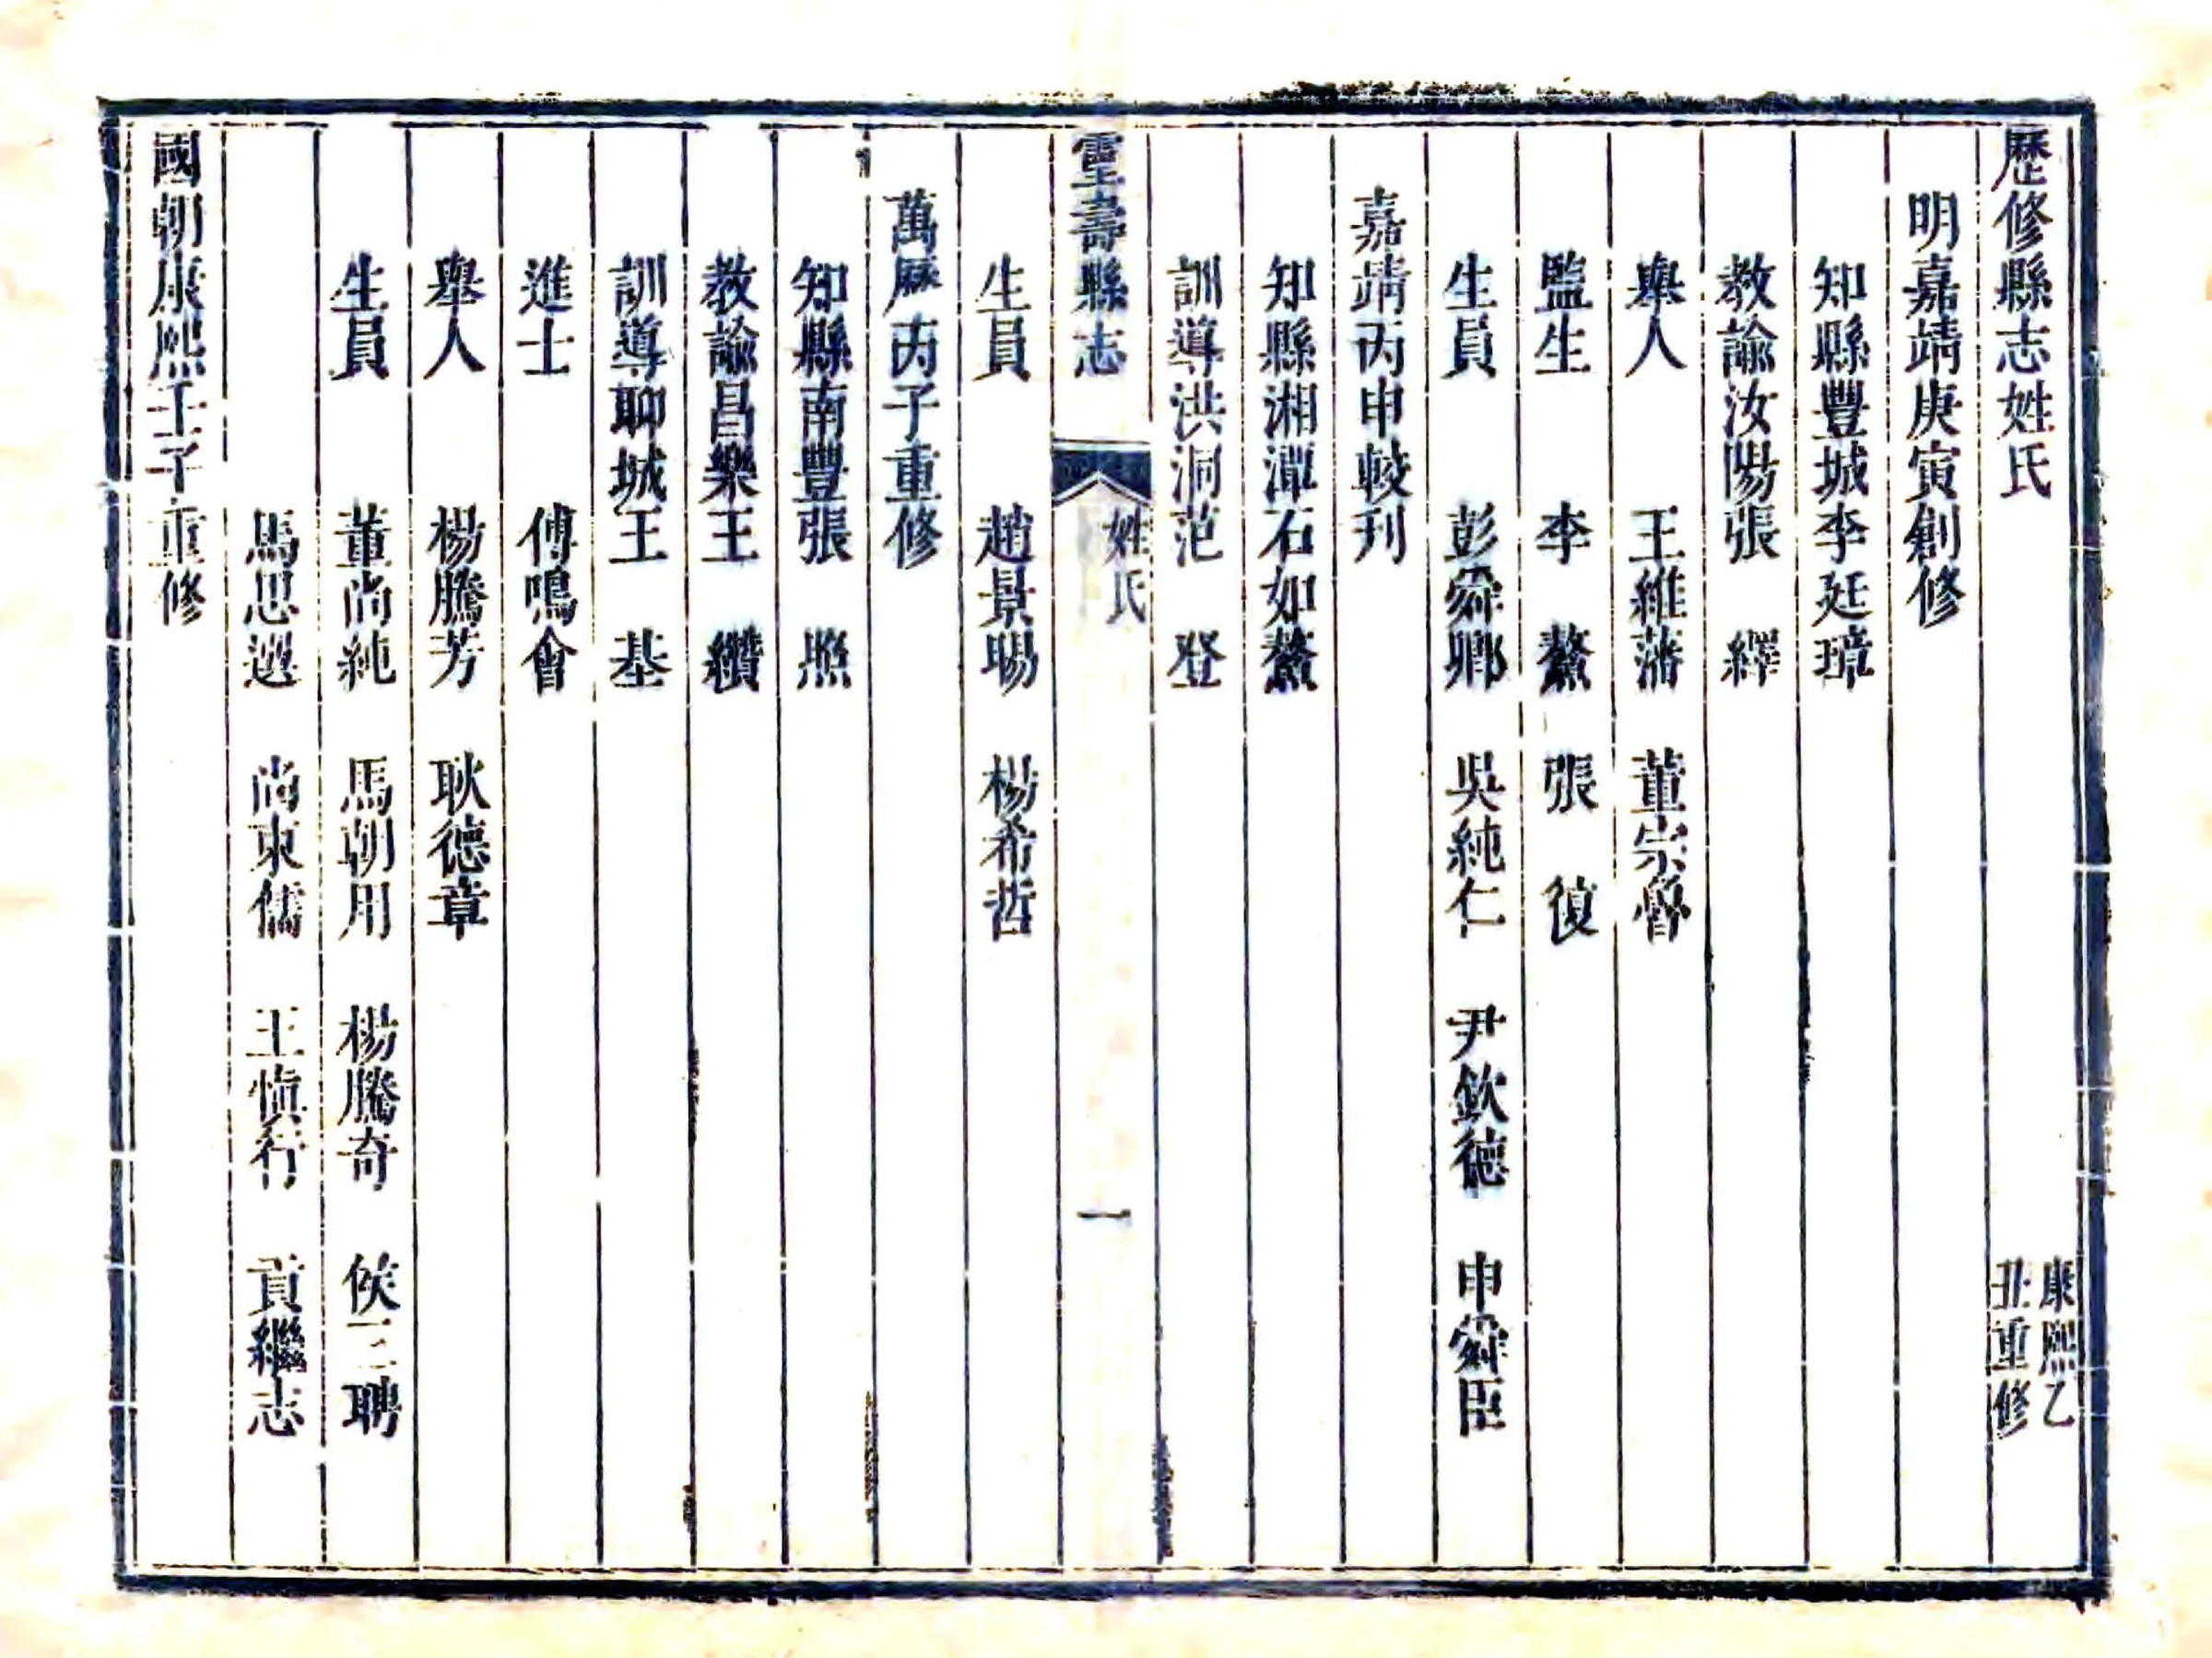 歷修縣志姓氏　康熙乙丑重修
明嘉靖庚寅創修
知縣豐城李廷璋
教諭汝陽張　繹
舉人　王維藩　董宗舜
監生　李　鰲　張　復
生員　彭舜卿　吳純仁　尹欽德　申舜臣
嘉靖丙申較刋
知縣湘潭石如鰲
訓導洪洞范　登
靈壽縣志　姓氏　一
生員　趙景暘　楊希哲
萬厯丙子重修
知縣南豐張　照
教諭昌樂王　纘
訓導聊城王　基
進士　傅鳴會
舉人　楊騰芳　耿德章
生員　董尚純　馬朝用　楊騰奇　侯三聘
馬思選　尚東儒　王慎行　貢繼志
國朝康熙壬子重修